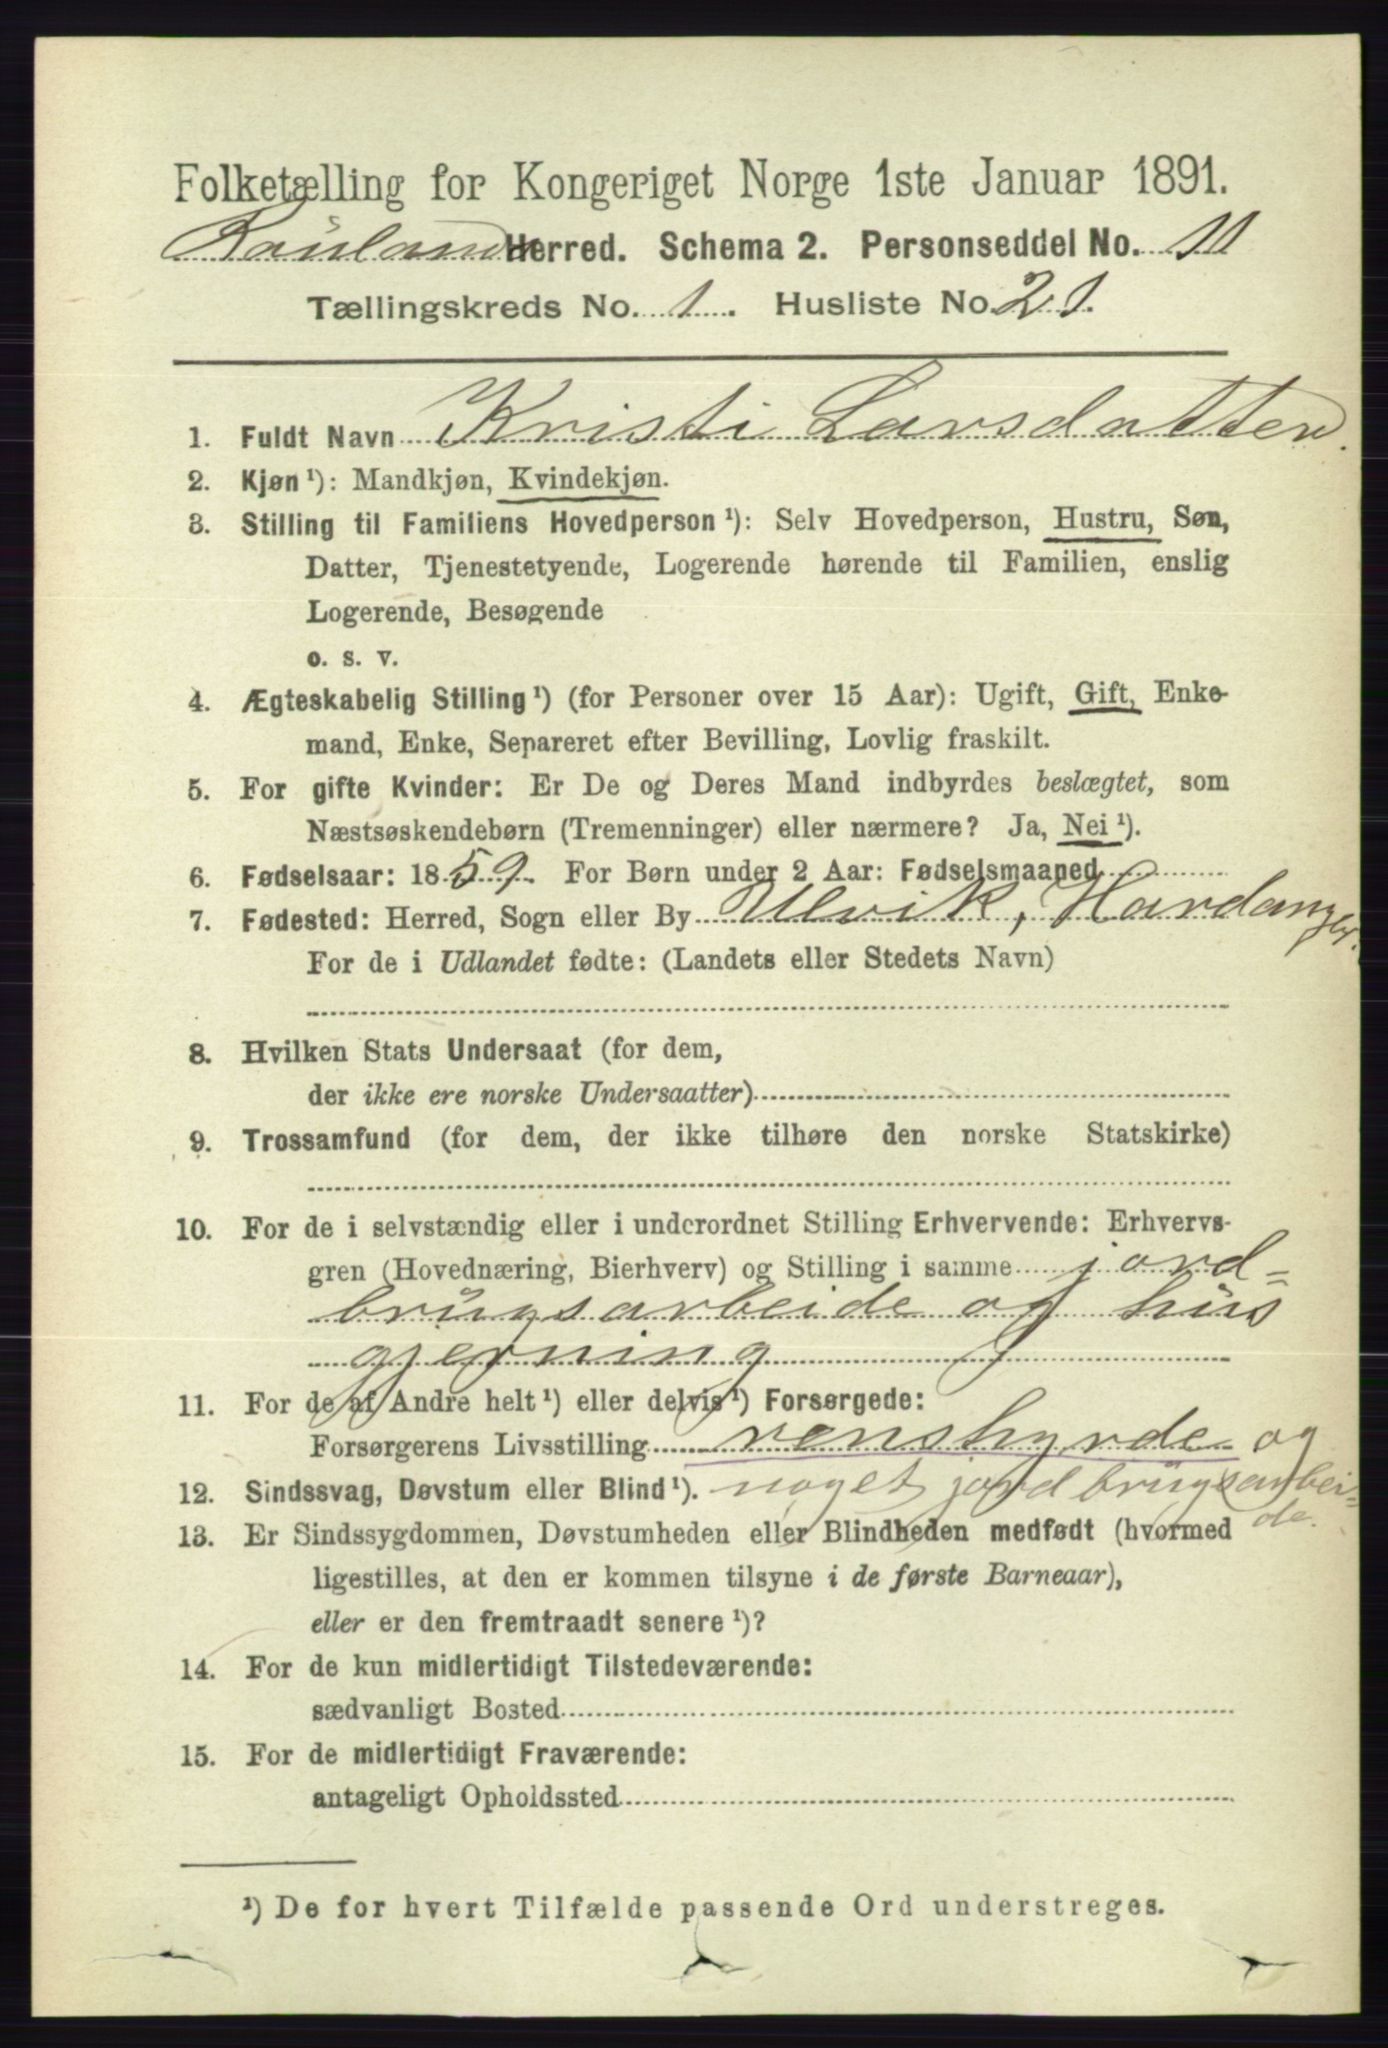 Folketælling for Kongeriget Norge 1ste Januar 1891.
Rauland Herred. Schema 2. Personseddel No. 11
Tællingskreds No. 1. Husliste No. 21.
1. Fuldt Navn Kristi Larsdatter.
2. Kjøn ¹): Mandkjøn, Kvindekjøn.
3. Stilling til Familiens Hovedperson ¹): Selv Hovedperson, Hustru, Søn,
Datter, Tjenestetyende, Logerende hørende til Familien, enslig
Logerende, Besøgende
o. s. v.
4. Ægteskabelig Stilling ¹) (for Personer over 15 Aar): Ugift, Gift, Enke-
mand, Enke, Separeret efter Bevilling, Lovlig fraskilt.
5. For gifte Kvinder: Er De og Deres Mand indbyrdes beslægtet, som
Næstsøskendebørn (Tremenninger) eller nærmere? Ja, Nei ¹).
6. Fødselsaar: 1859. For Børn under 2 Aar: Fødselsmaaned
7. Fødested: Herred, Sogn eller By Ulvik, Hardanger.
For de i Udlandet fødte: (Landets eller Stedets Navn)
8. Hvilken Stats Undersaat (for dem,
der ikke ere norske Undersaatter)
9. Trossamfund (for dem, der ikke tilhøre den norske Statskirke)
10. For de i selvstændig eller i underordnet Stilling Erhvervende: Erhvervs-
gren (Hovednæring, Bierhverv) og Stilling i samme jord=
brugsarbeide og hus
gjerning
11. For de af Andre helt ¹) eller delvis ¹) Forsørgede:
Forsørgerens Livsstilling renshyrde og
12. Sindssvag, Døvstum eller Blind ¹). noget jordbrugsarbei=
de.
13. Er Sindssygdommen, Døvstumheden eller Blindheden medfødt (hvormed
ligestilles, at den er kommen tilsyne i de første Barneaar),
eller er den fremtraadt senere ¹)?
14. For de kun midlertidigt Tilstedeværende:
sædvanligt Bosted
15. For de midlertidigt Fraværende:
antageligt Opholdssted
¹) De for hvert Tilfælde passende Ord understreges.